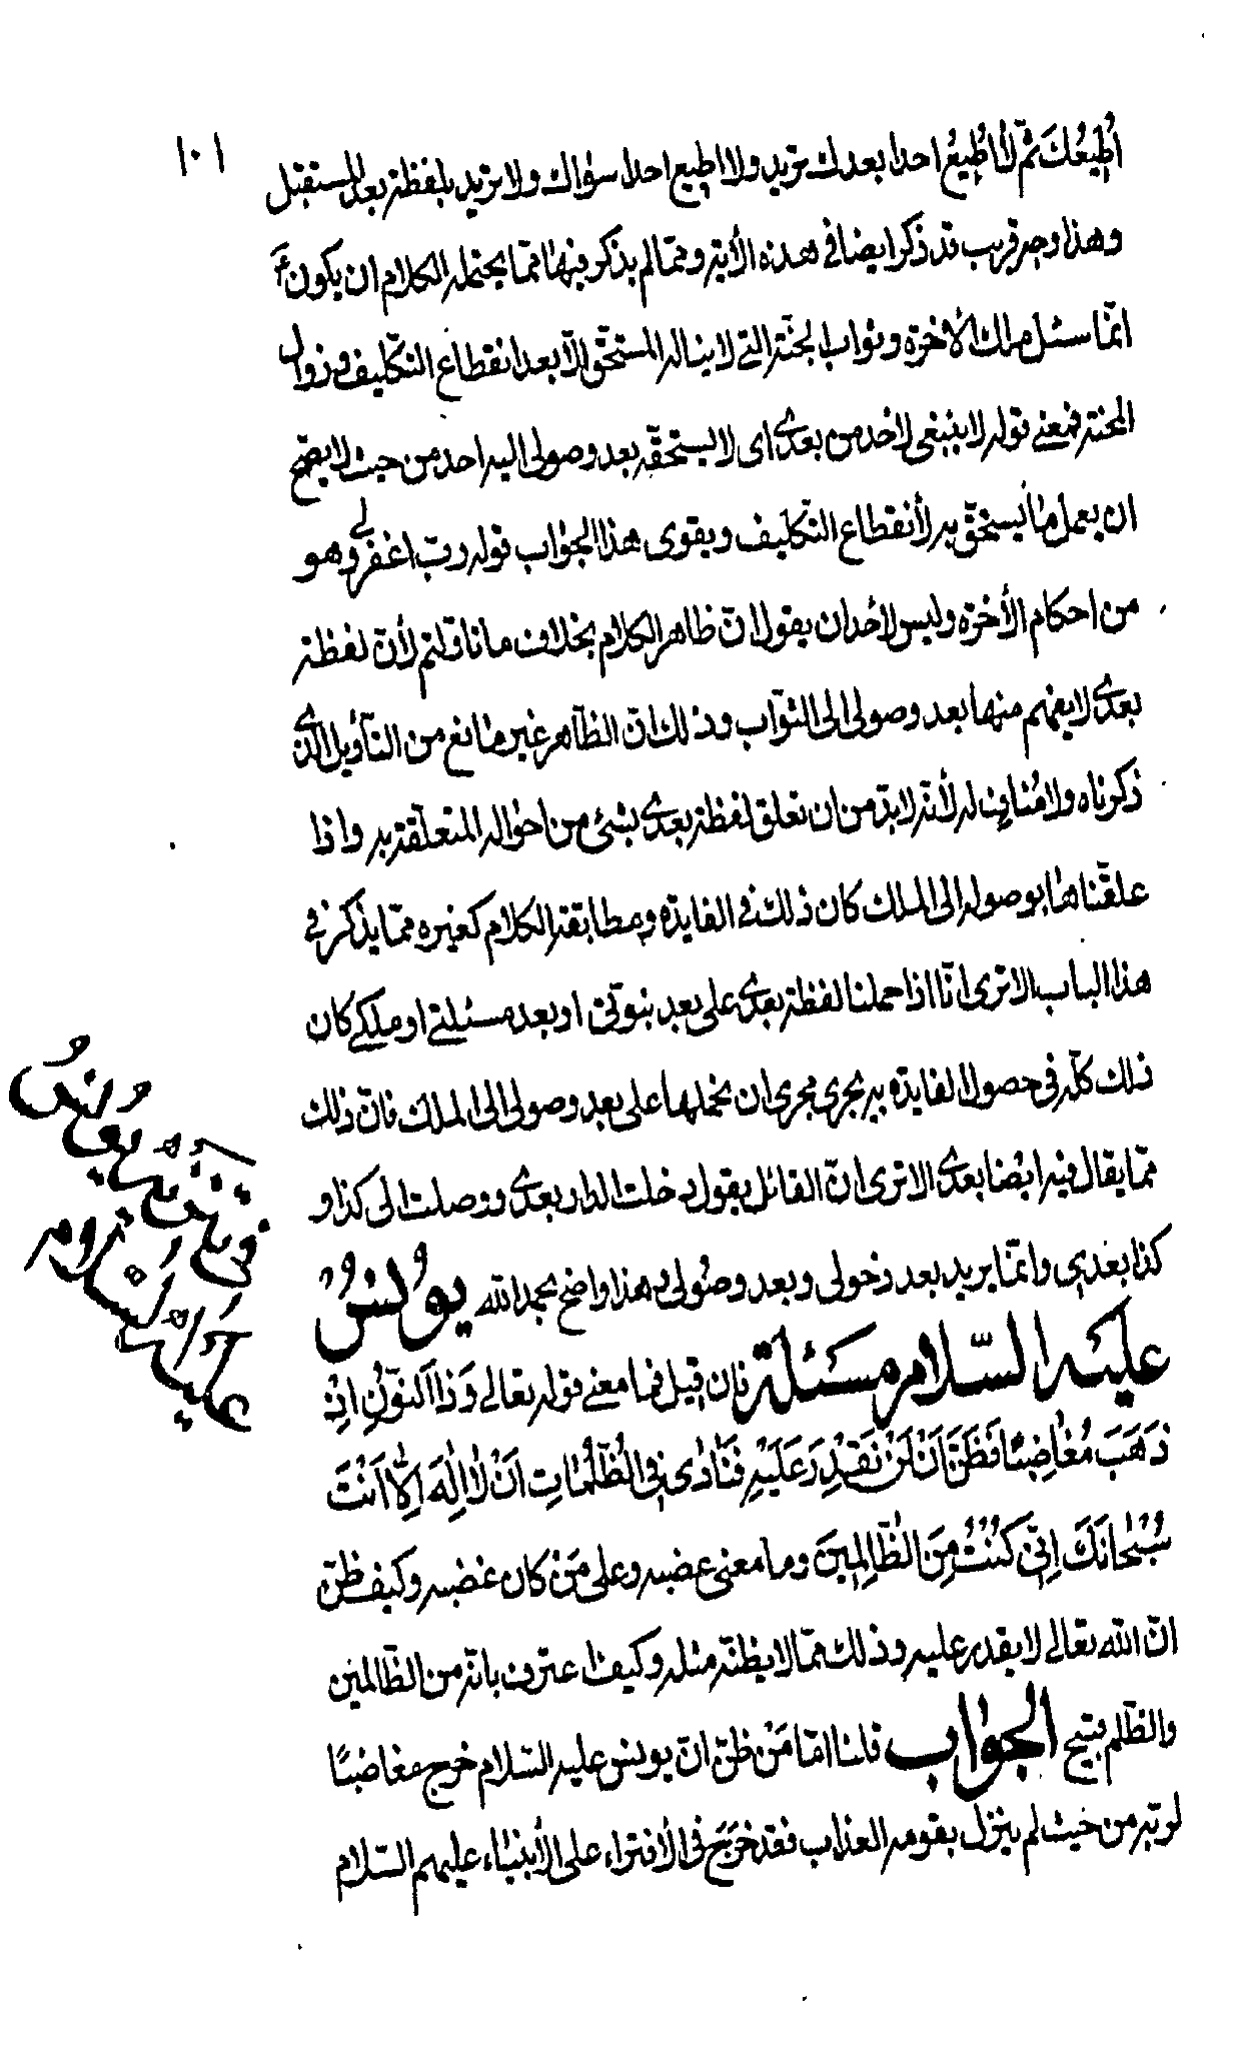 ١٠١
اُطِيعُكَ ثُمّ لأاُطِيعُ احدا بعدك تريد ولا اطيع احدا سواك ولا تريد بلفظة بعد المستقبل
وهذا وجه قريب قد ذكر ايضا في هذه الأية وممّا لم يذكر فيها ممّا يحتمله الكلام ان يكون ع
انّما سئل ملك الأخرة وثواب الجنّة التي لا يناله المستحقّ الّا بعد انقطاع التّكليف وزوال
المحنة فمعنى قوله لا ينبغى لاحد من بعدى اى لا يستحقّه بعد وصولى اليه احد من حيث لا يصحّ
ان يعمل ما يستحقّ به لأنقطاع التّكليف ويقوى هذا الجواب قوله ربّ اغفر لى وهو
من احكام الأخرة وليس لأحد ان يقول انّ ظاهر الكلام بخلاف ما تاوّلتم لأنّ لفظة
بعدى لا يفهم منها بعد وصولى الى الثّواب وذلك انّ الظّاهر غير مانع من التّأويل الذى
ذكرناه ولا مُناف له لأنّه لا بدّ من ان تعلق لفظة بعدى بشئ من احواله المتعلّقة به واذا
علقّناها بوصوله الى الملك كان ذلك في الفايدة ومطابقة الكلام كغيره ممّا يذكر في
هذا الباب الا ترى انّا اذا حملنا لفظة بعدى على بعد نبوّتى او بعد مسئلتى او ملكى كان
ذلك كلّه في حصول الفايدة به يجرى مجرى ان نحملها على بعد وصولى الى الملك فانّ ذلك
ممّا يقال فيه ايضا بعدى الا ترى انّ القائل يقول دخلت الدار بعدى ووصلت الى كذا و
كذا بعدى وانّما يريد بعد دخولى وبعد وصولى وهذا واضح بحمد الله يُونسُ
عليه السّلام مسئلة فان قيل فما معنى قوله تعالى وَذَا النوّنِ اِذْ
ذَهَبَ مُغاضِبًا فَظَنَّ اَنْ لَنْ نَقْدِرَ عَلَيْهِ فَنَادٰى فِي الظُّلُمٰاتِ اَنْ لاٰ اِلٰهَ اِلّٰا اَنْتَ
سُبْحٰانَكَ اِنّىِ كُنْتُ مِنَ الظّٰالِمِينَ وما معنى غضبه وعلى مَنْ كان غضبه وكيف ظنّ
انّ الله تعالى لا يقدر عليه وذلك ممّا لا يظنّه مثله وكيف اعترف بانّه من الظّالمين
والظّلم قبيح الجواب قلنا امّا مَنْ ظنّ انّ يونس عليه السّلام خرج مغاضبًا
لربّه من حيث لم ينزل بقومه العذاب فقد خَرَجَ في الأفتراء على الأنبياء عليهم السّلام
عليه السّلام
في تنزيه يُونسُ